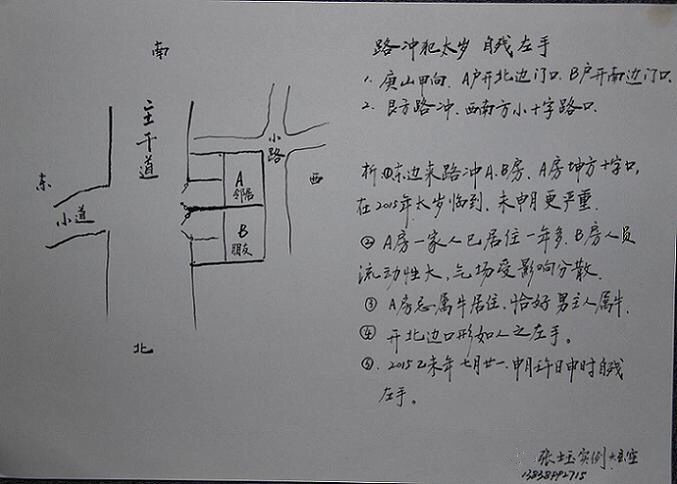 南
主干道
小路
东
西
小道
A
邻居
B
朋友
北
路冲犯太岁 自残左手
1. 庚山甲向. A户开北边门口. B户开南边门口.
2. 艮方路冲. 西南方小十字路口.
析①东边来路冲A.B房. A房坤方十字口,
在2015年太岁临到, 未申月更严重.
② A房一家人已居住一年多. B房人员
流动性大, 气场受影响分散.
③ A房忌属牛居住, 恰好男主人属牛.
④ 开北边口形如人之左手。
⑤. 2015乙未年七月廿一. 申月 日申时自残
左手。
张土玉实例 玄空
13838492715